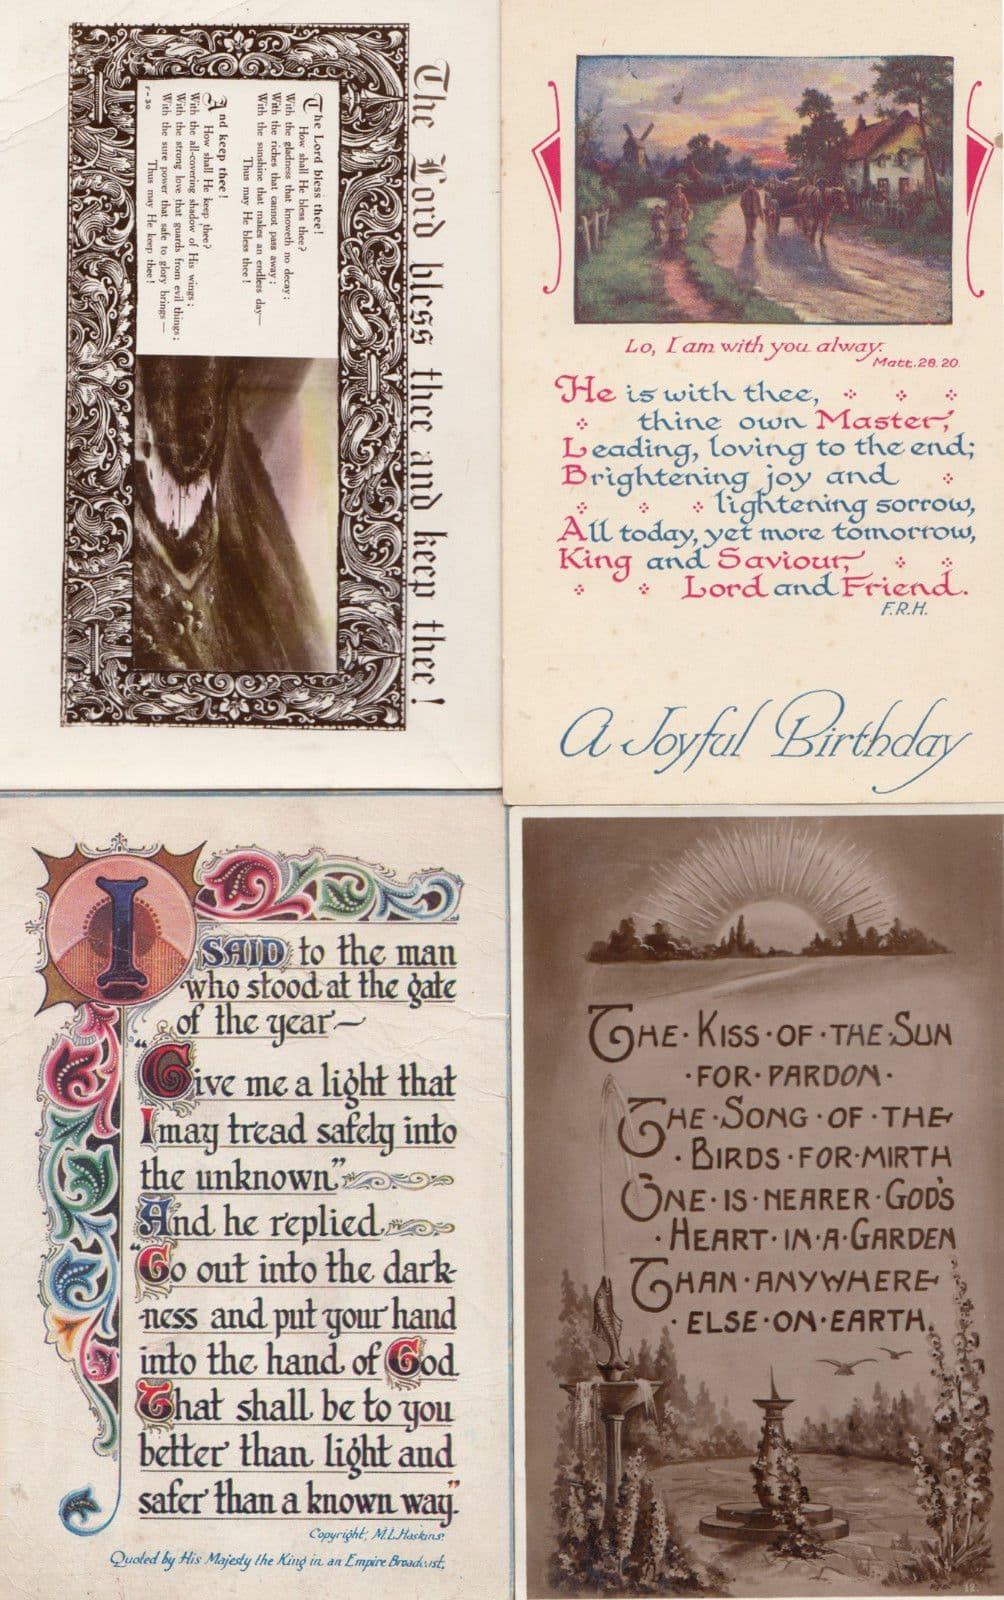 The Lord bless thee and keep thee!
The Lord bless thee!
How shall He bless thee?
With the gladness that knoweth no decay;
With the riches that cannot pass away;
With the sunshine that makes an endless day—
Thus may He bless thee!
And keep thee!
How shall He keep thee?
With the all-covering shadow of His wings;
With the strong love that guards from evil things;
With the sure power that safe to glory brings—
Thus may He keep thee!
Lo, I am with you alway.
Matt. 28. 20.
He is with thee,
thine own Master,
Leading, loving to the end;
Brightening joy and
lightening sorrow,
All today, yet more tomorrow,
King and Saviour,
Lord and Friend.
F.R.H.
A Joyful Birthday
I SAID to the man
who stood at the gate
of the year—
"Give me a light that
I may tread safely into
the unknown."
And he replied
"Go out into the dark-
-ness and put your hand
into the hand of God
That shall be to you
better than light and
safer than a known way."
Copyright, M.L. Haskins.
Quoted by His Majesty the King in an Empire Broadcast.
THE·KISS·OF·THE·SUN
·FOR·PARDON·
THE·SONG·OF·THE
·BIRDS·FOR·MIRTH
ONE·IS·NEARER·GOD'S
·HEART·IN·A·GARDEN
THAN·ANYWHERE
·ELSE·ON·EARTH.
12.